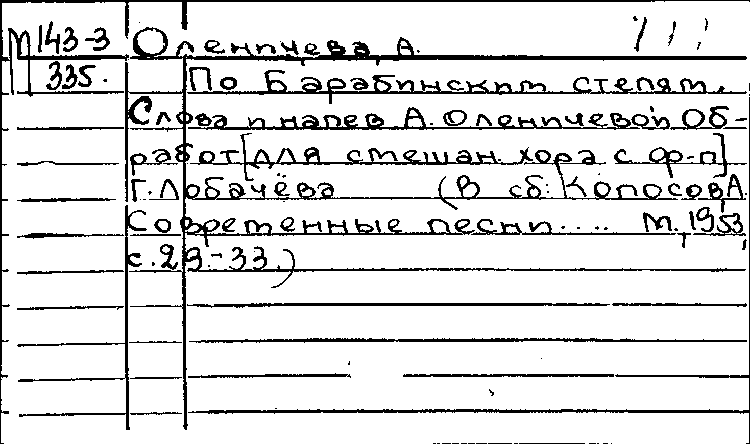 М 143-3 Оленичева, А.
335. По Барабинским степям.
Слова и напев А. Оленичевой Об-
работ [для смешан. хора с фр-п]
Г. Лобачёва (В сб: Колосов, А.
Современные песни.... М., 1953,
с. 29-33.)